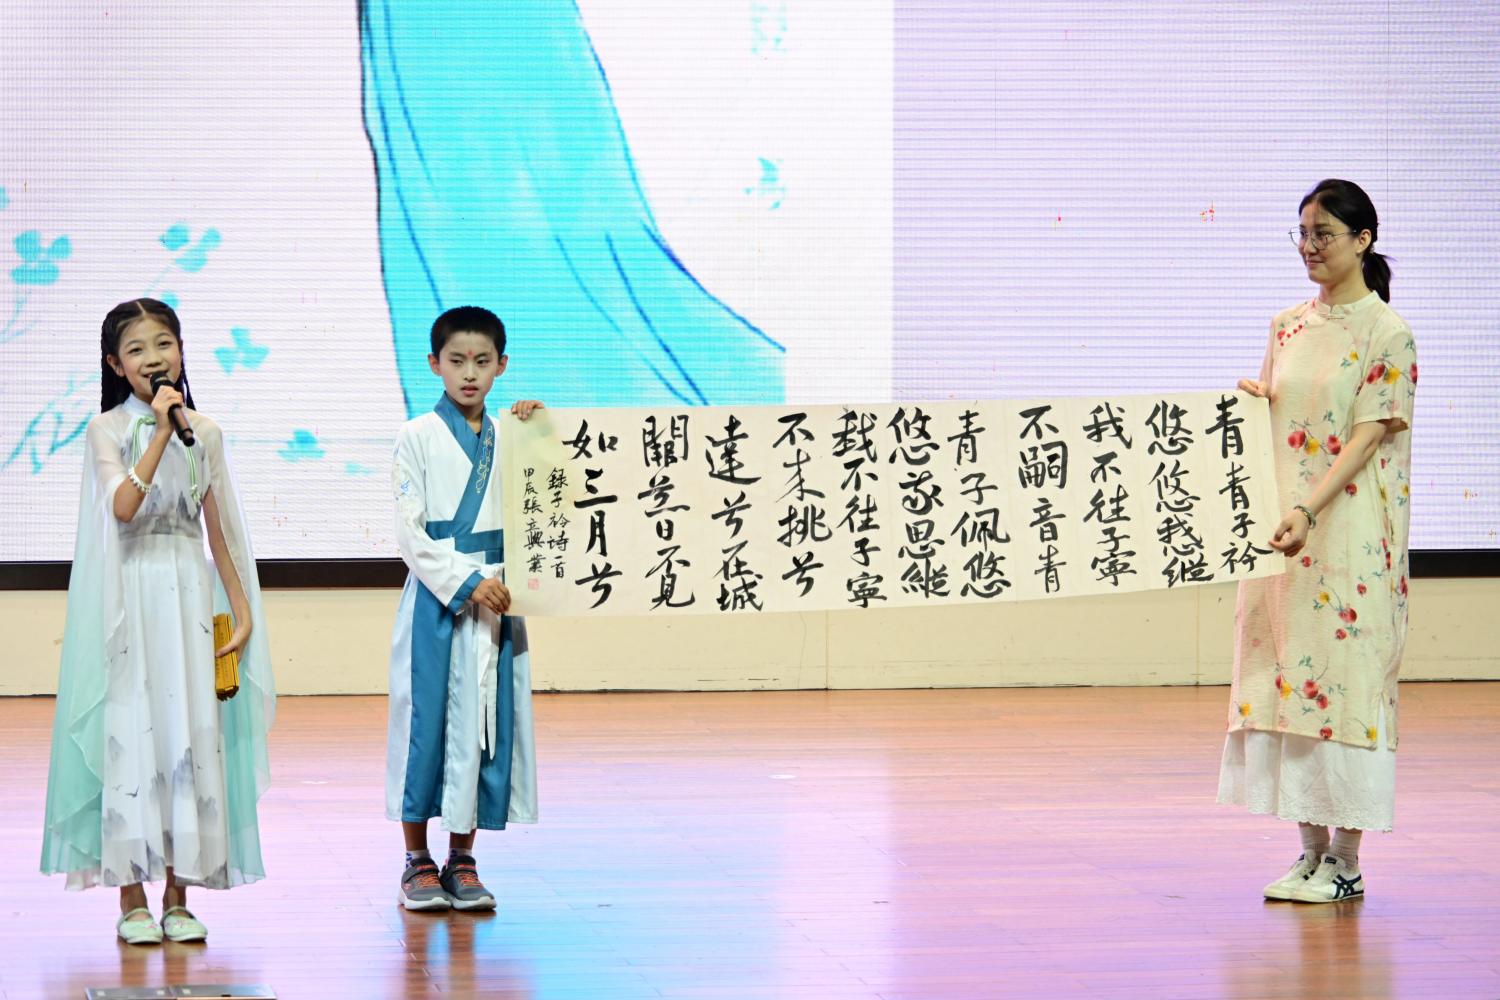 青青子衿
悠悠我心縱
我不往子寧
不嗣音青
青子佩悠
悠我思縱
我不往子寧
不来挑兮
達兮在城
闕兮一日不見
如三月兮
錄子衿诗一首
甲辰張興業